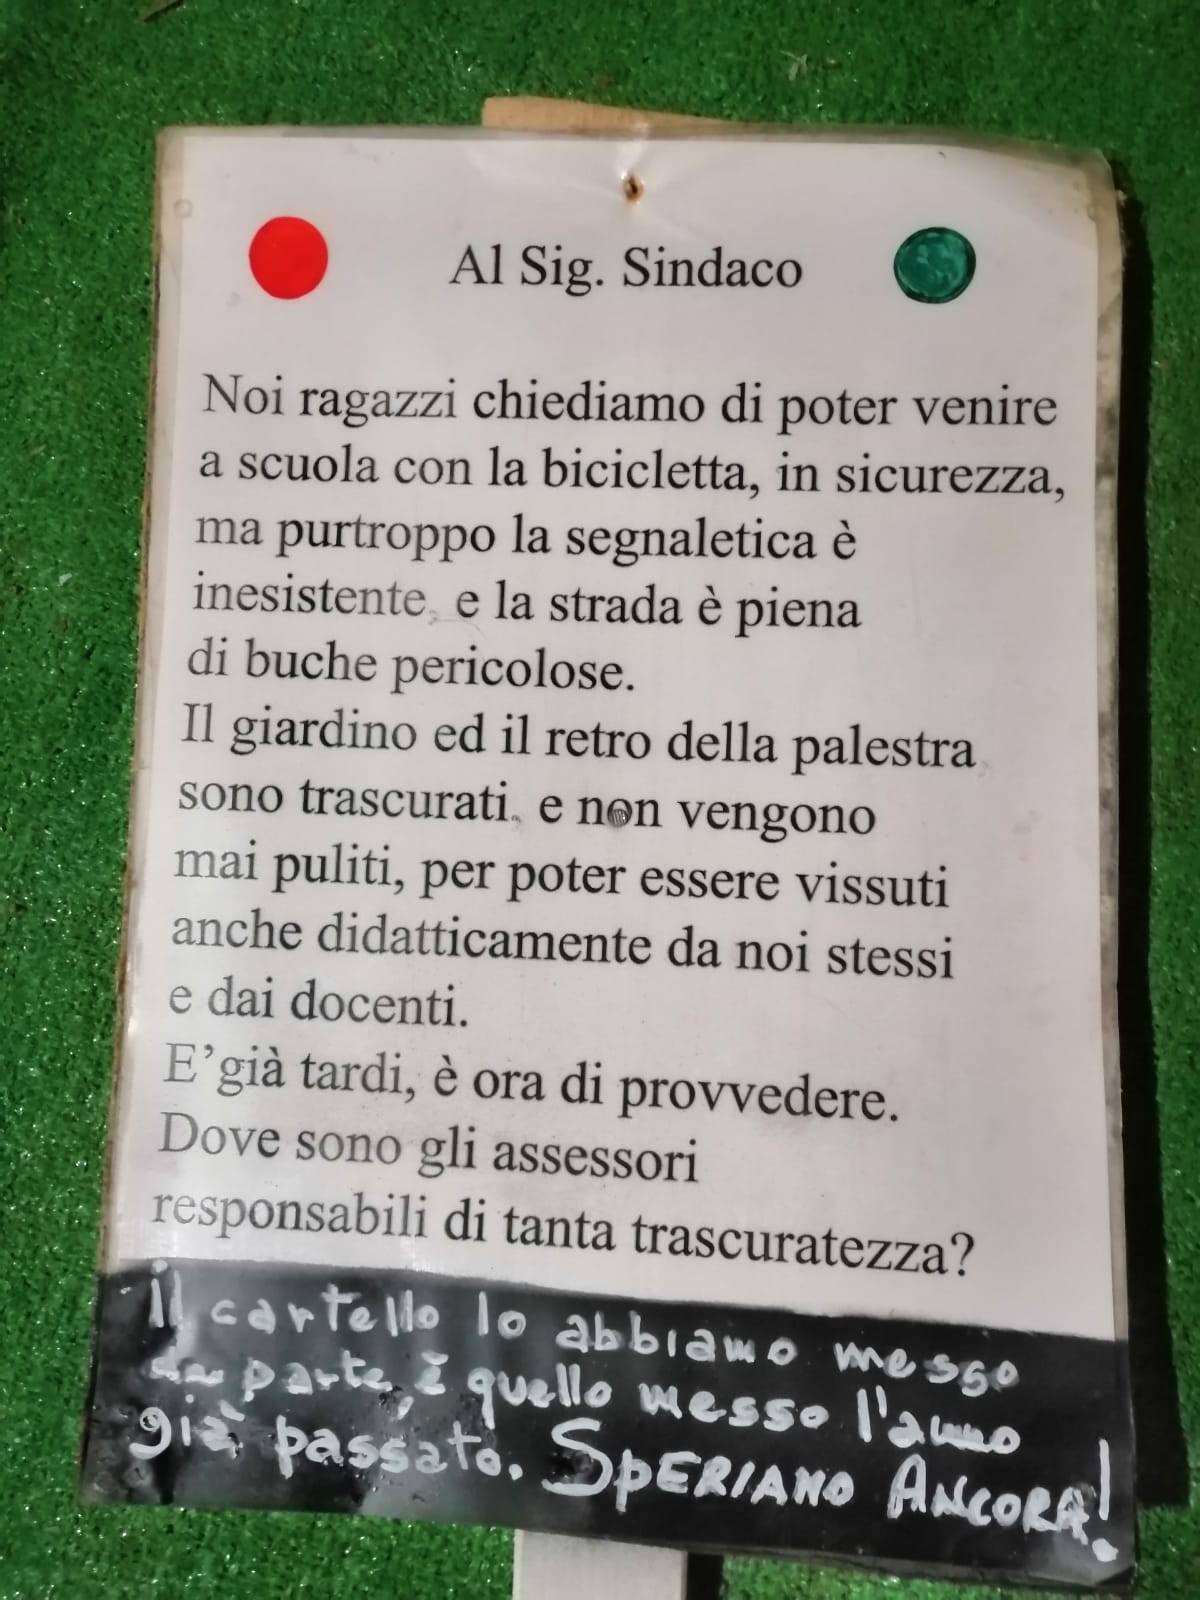 Al Sig. Sindaco
Noi ragazzi chiediamo di poter venire
a scuola con la bicicletta, in sicurezza,
ma purtroppo la segnaletica è
inesistente, e la strada è piena
di buche pericolose.
Il giardino ed il retro della palestra
sono trascurati, e non vengono
mai puliti, per poter essere vissuti
anche didatticamente da noi stessi
e dai docenti.
E'già tardi, è ora di provvedere.
Dove sono gli assessori
responsabili di tanta trascuratezza?
il cartello lo abbiamo messo
da parte, è quello messo l'anno
già passato. SPERIANO ANCORA!